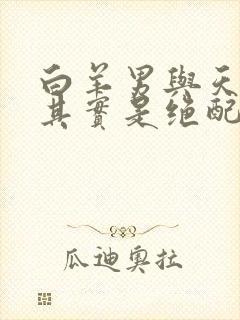 白羊男與天
其實是絕配
瓜迪奧拉